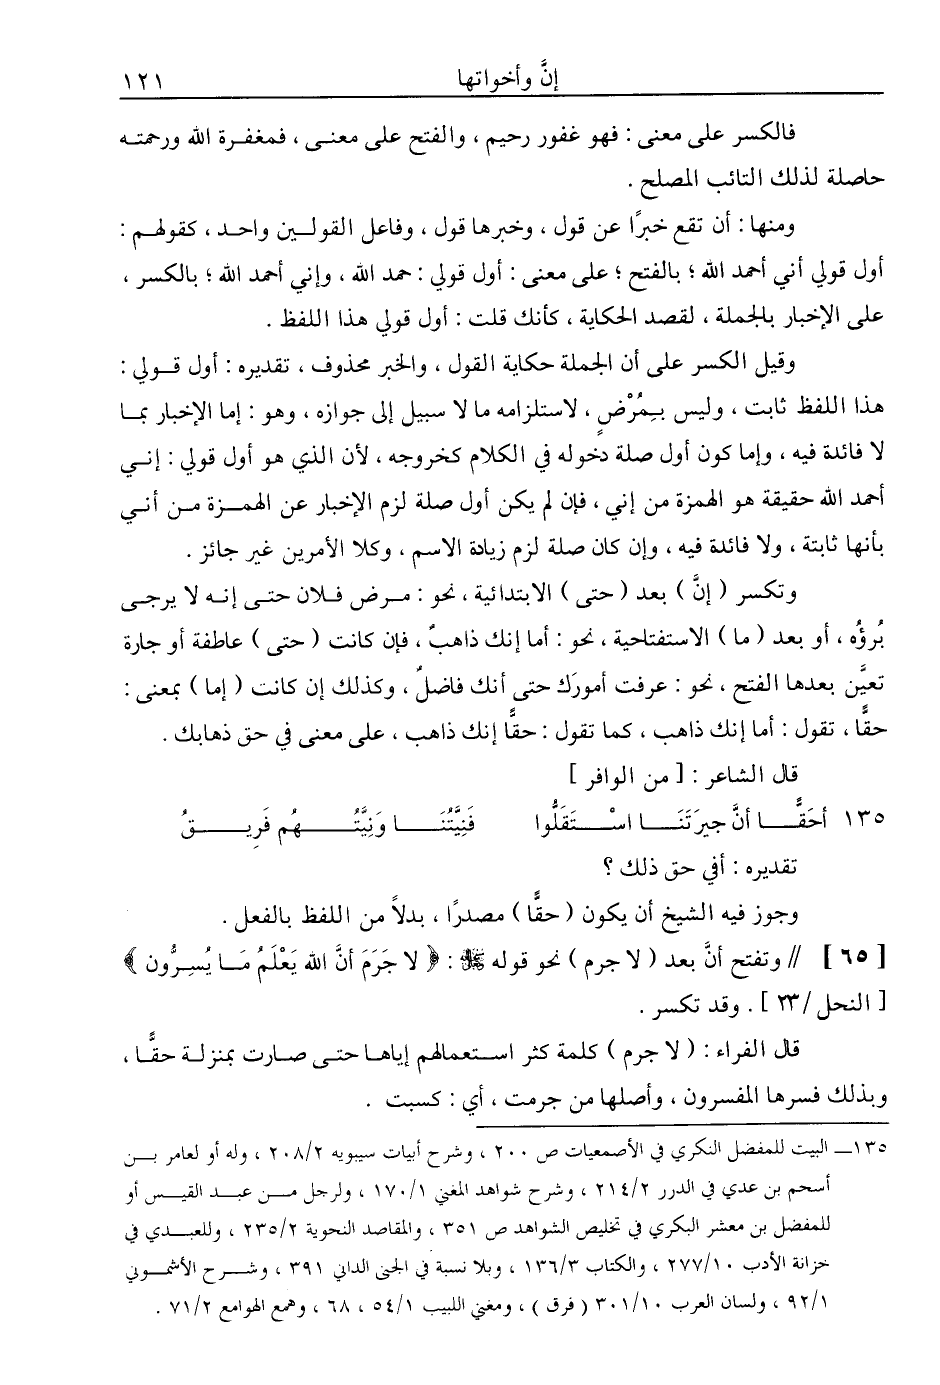 إنَّ وأخواتها ١٢١
فالكسر على معنى : فهو غفور رحيم ، والفتح على معنى ، فمغفرة الله ورحمته
حاصلة لذلك التائب المصلح .
ومنها : أن تقع خبرًا عن قول ، وخبرها قول ، وفاعل القولين واحد ، كقولهم :
أول قولي أني أحمد الله ؛ بالفتح ؛ على معنى : أول قولي : حمد الله ، وإني أحمد الله ؛ بالكسر ،
على الإخبار بالجملة ، لقصد الحكاية ، كأنك قلت : أول قولي هذا اللفظ .
وقيل الكسر على أن الجملة حكاية القول ، والخبر محذوف ، تقديره : أول قولي :
هذا اللفظ ثابت ، وليس بِمُرْضٍ ، لاستلزامه ما لا سبيل إلى جوازه ، وهو : إما الإخبار بما
لا فائدة فيه ، وإما كون أول صلة دخوله في الكلام كخروجه ، لأن الذي هو أول قولي : إني
أحمد الله حقيقة هو الهمزة من إني ، فإن لم يكن أول صلة لزم الإخبار عن الهمزة من أني
بأنها ثابتة ، ولا فائدة فيه ، وإن كان صلة لزم زيادة الاسم ، وكلا الأمرين غير جائز .
وتكسر ( إنَّ ) بعد ( حتى ) الابتدائية ، نحو : مرض فلان حتى إنه لا يرجى
بُرؤُه ، أو بعد ( ما ) الاستفتاحية ، نحو : أما إنك ذاهبٌ ، فإن كانت ( حتى ) عاطفة أو جارة
تعيَّن بعدها الفتح ، نحو : عرفت أمورَك حتى أنك فاضلٌ ، وكذلك إن كانت ( إما ) بمعنى :
حقًّا ، تقول : أما إنك ذاهب ، كما تقول : حقًّا إنك ذاهب ، على معنى في حق ذهابك .
قال الشاعر : [ من الوافر ]
١٣٥ أحَقًّا أنَّ جيرَتَنَا اسْتَقَلُّوا فَنِيَّتُنَا وَنِيَّتُهُم فَرِيقُ
تقديره : أفي حق ذلك ؟
وجوز فيه الشيخ أن يكون ( حقًّا ) مصدرًا ، بدلاً من اللفظ بالفعل .
[ ٦٥ ] // وتفتح أنَّ بعد ( لا جرم ) نحو قوله ﷺ : ﴿ لا جَرَمَ أنَّ الله يَعْلَمُ مَا يُسِرُّون ﴾
[ النحل/٢٣ ] . وقد تكسر .
قال الفراء : ( لا جرم ) كلمة كثر استعمالهم إياها حتى صارت بمنزلة حقًّا ،
وبذلك فسرها المفسرون ، وأصلها من جرمت ، أي : كسبت .
١٣٥ــ البيت للمفضل النكري في الأصمعيات ص ٢٠٠ ، وشرح أبيات سيبويه ٢٠٨/٢ ، وله أو لعامر بن
أسحم بن عدي في الدرر ٢١٤/٢ ، وشرح شواهد المغني ١٧٠/١ ، ولرجل من عبد القيس أو
للمفضل بن معشر البكري في تخليص الشواهد ص ٣٥١ ، والمقاصد النحوية ٢٣٥/٢ ، وللعبدي في
خزانة الأدب ٢٧٧/١٠ ، والكتاب ١٣٦/٣ ، وبلا نسبة في الجنى الداني ٣٩١ ، وشرح الأشموني
٩٢/١ ، ولسان العرب ٣٠١/١٠ ( فرق ) ، ومغني اللبيب ٥٤/١ ، ٦٨ ، وهمع الهوامع ٧١/٢ .